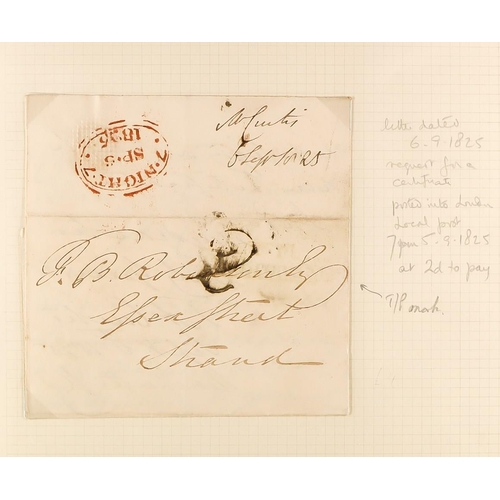 7·NIGHT·7
SP·5
1825
Mr Curtis
6 Sept 1825
F. B. Robinson Esq
2
Essex Street
Strand
letter dated
6.9.1825
request for a
certificate
posted into London
Local post
7pm 5.9.1825
at 2d to pay
T/P mark.